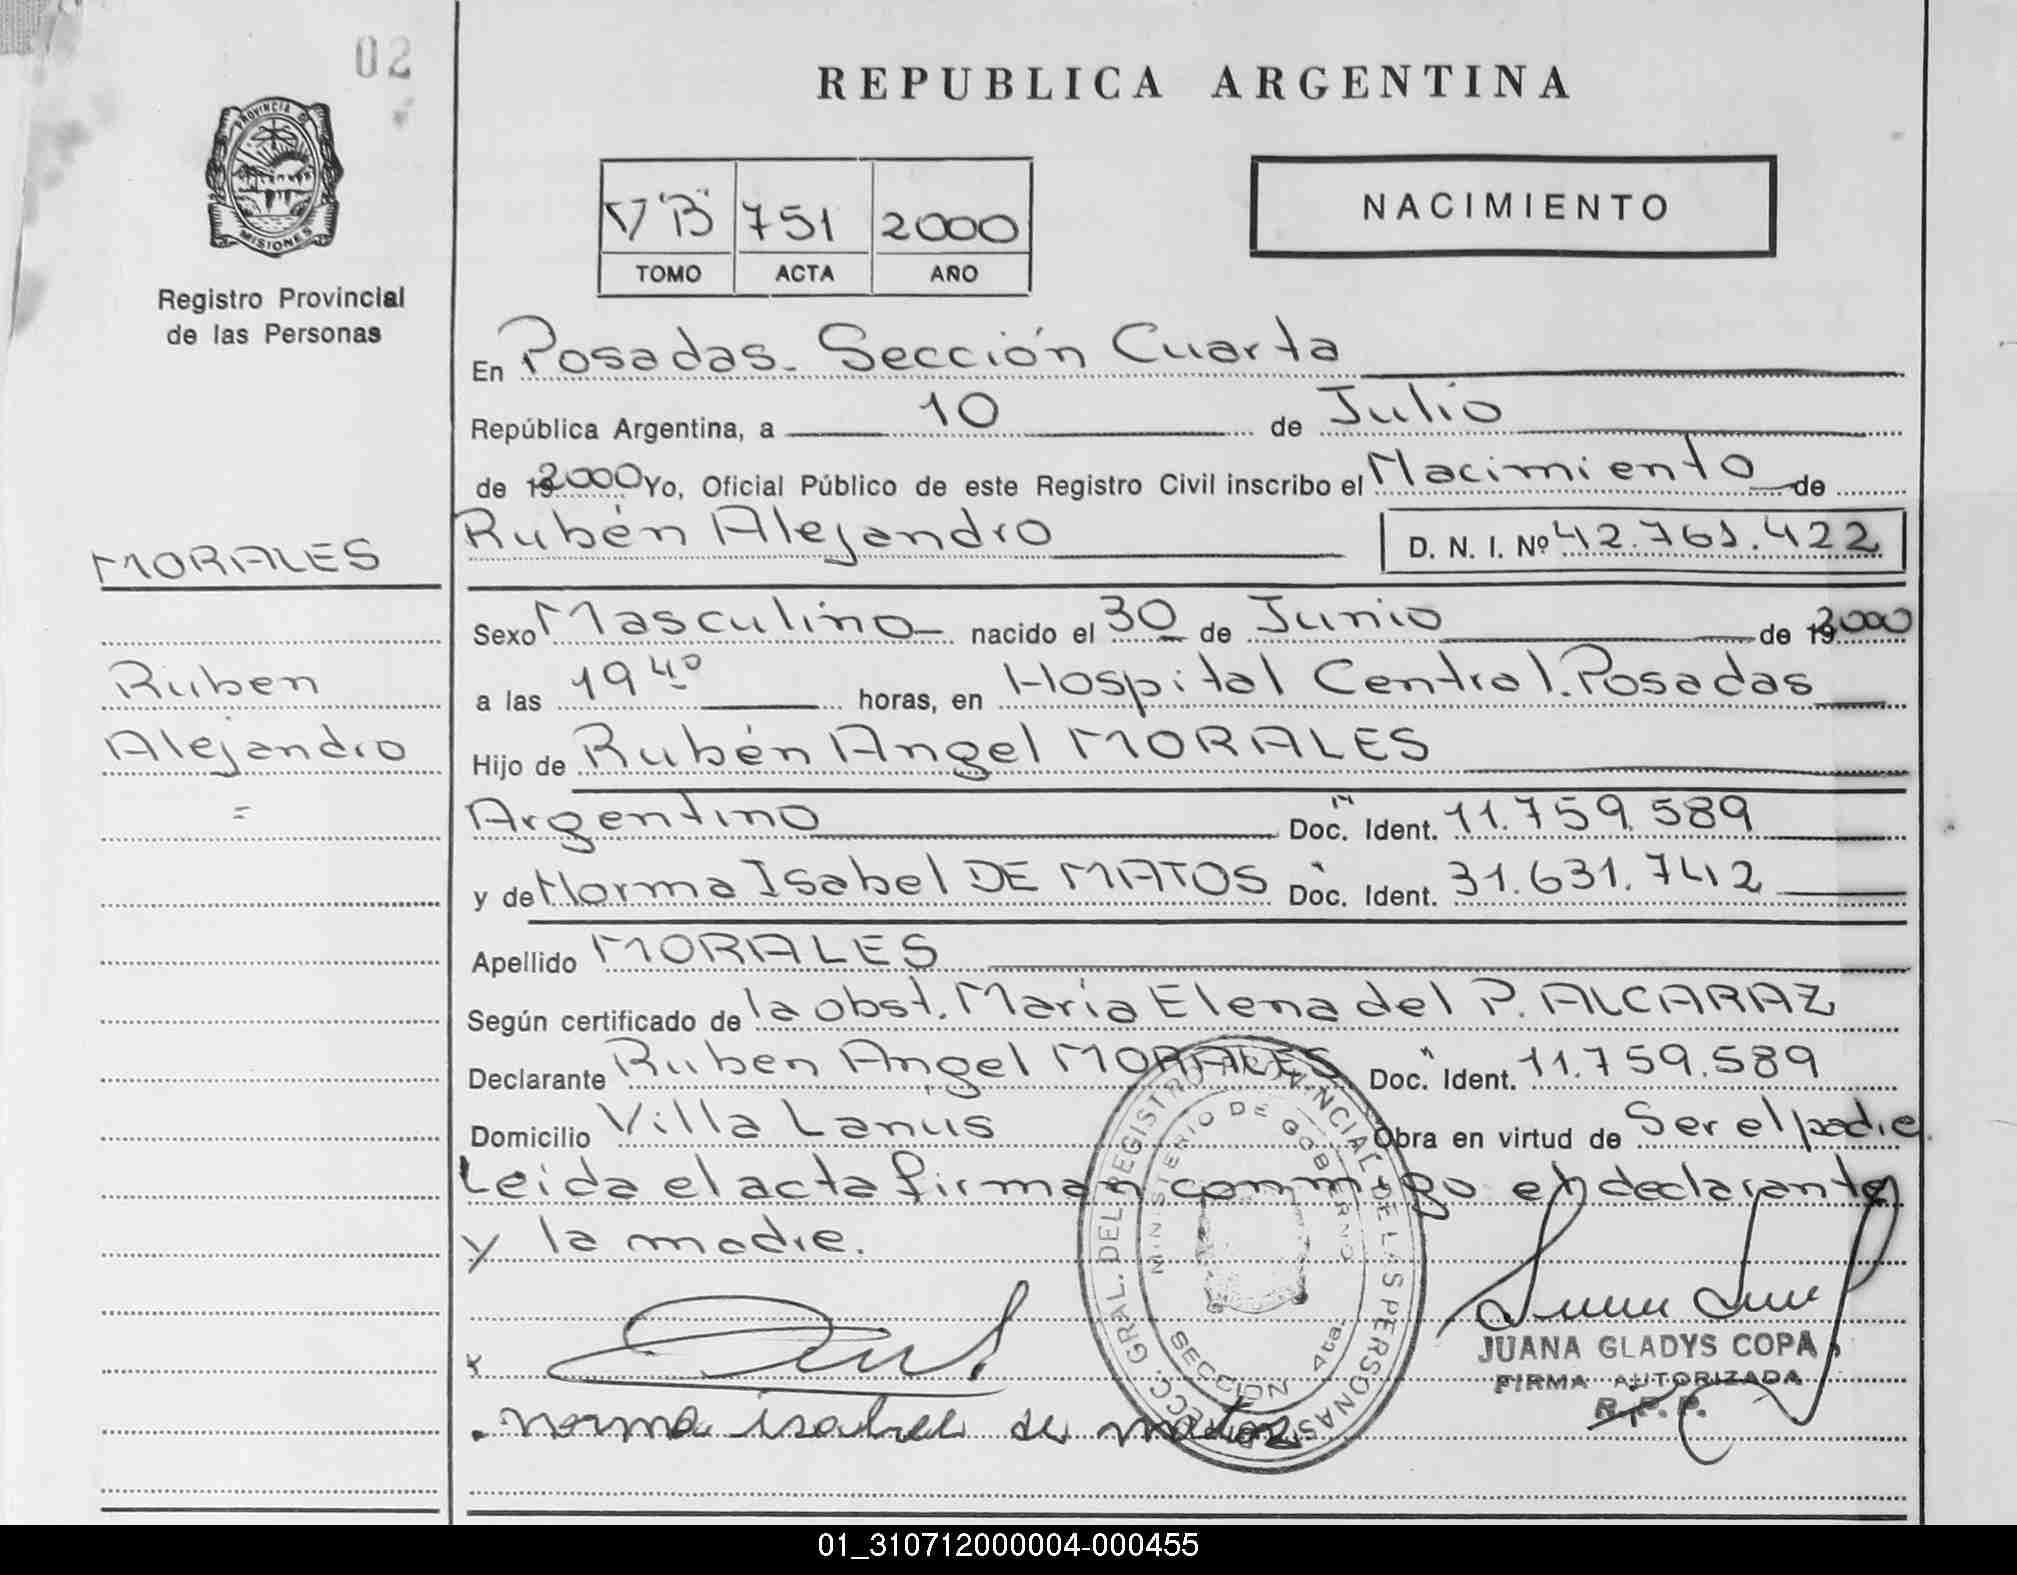 02
PROVINCIA DE
MISIONES
Registro Provincial
de las Personas
MORALES
Ruben
Alejandro
=
REPUBLICA ARGENTINA
V"B" 751 2000
TOMO ACTA AÑO
NACIMIENTO
En Posadas. Sección Cuarta
República Argentina, a 10 de Julio
de 2000 Yo, Oficial Público de este Registro Civil inscribo el Nacimiento de
Rubén Alejandro D. N. I. Nº 42.761.422
Sexo Masculino nacido el 30 de Junio de 2000
a las 19 40 horas, en Hospital Central. Posadas
Hijo de Rubén Angel MORALES
Argentino Doc. Ident. 11.759.589
y de Norma Isabel DE MATOS Doc. Ident. 31.631.742
Apellido MORALES
Según certificado de la obst. María Elena del P. ALCARAZ
Declarante Ruben Angel MORALES Doc. Ident. 11.759.589
Domicilio Villa Lanús Obra en virtud de Ser el padre
Leida el acta firman conmigo el declarante
y la madre.
DIRECC. GRAL. DEL REGISTRO PROVINCIAL DE LAS PERSONAS
MINISTERIO DE GOBIERNO
SECCION 4ta.
JUANA GLADYS COPA
FIRMA AUTORIZADA
R.P.P.
norma isabel de matos
01_310712000004-000455